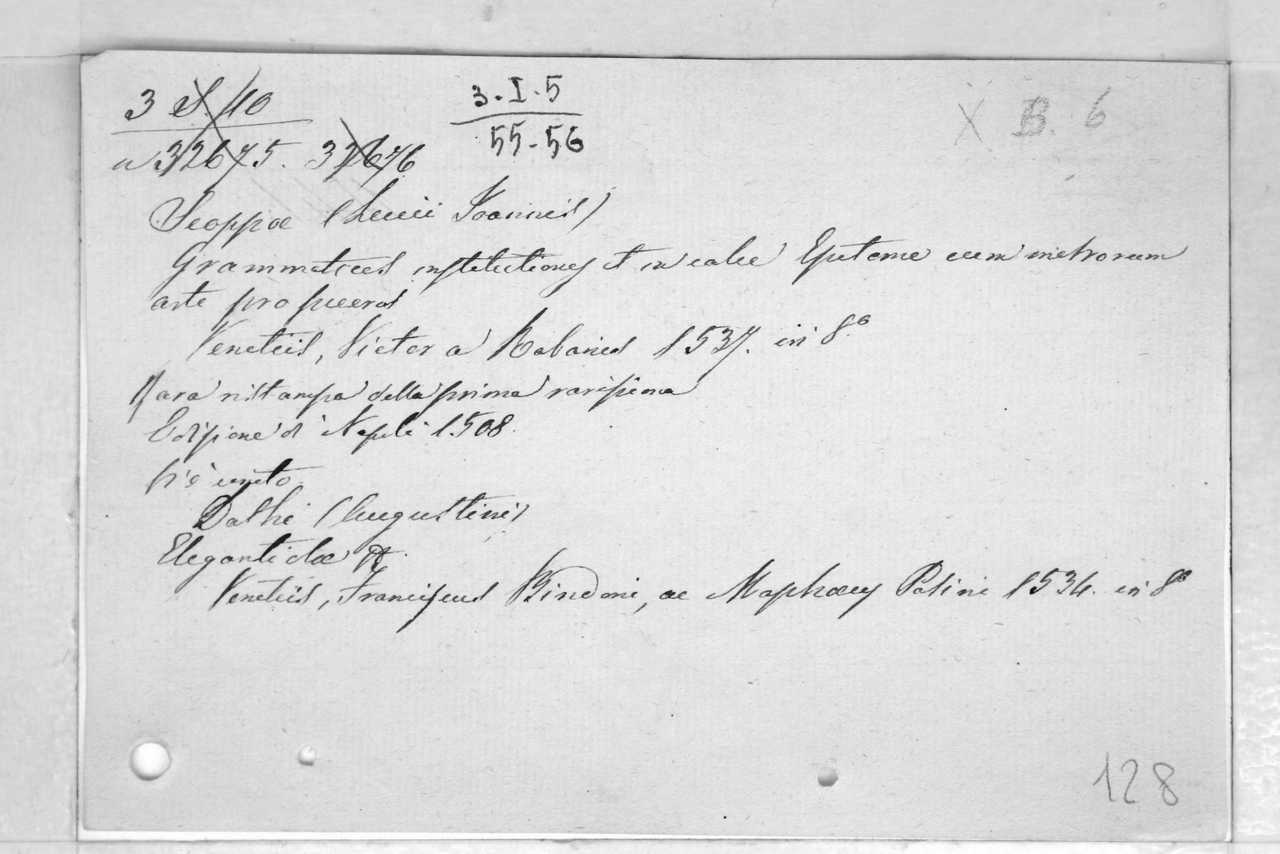 3 S. 40
3 - I - 5
55 - 56
X B. 6
a 32675. 32676
Scoppae (Lucii Joannis)
Grammatices institutiones et in calce Epitome cum metrorum
arte pro pueros
Venetiis, Victor a Rabanis 1537. in 8º
Rara ristampa della prima rarissima
Edizione di Napoli 1508.
Vi è unito
Dathi (Augustini)
Elegantiolae
Venetiis, Franciscus Bindoni, ac Mapheus Pasini 1534. in 8º
128